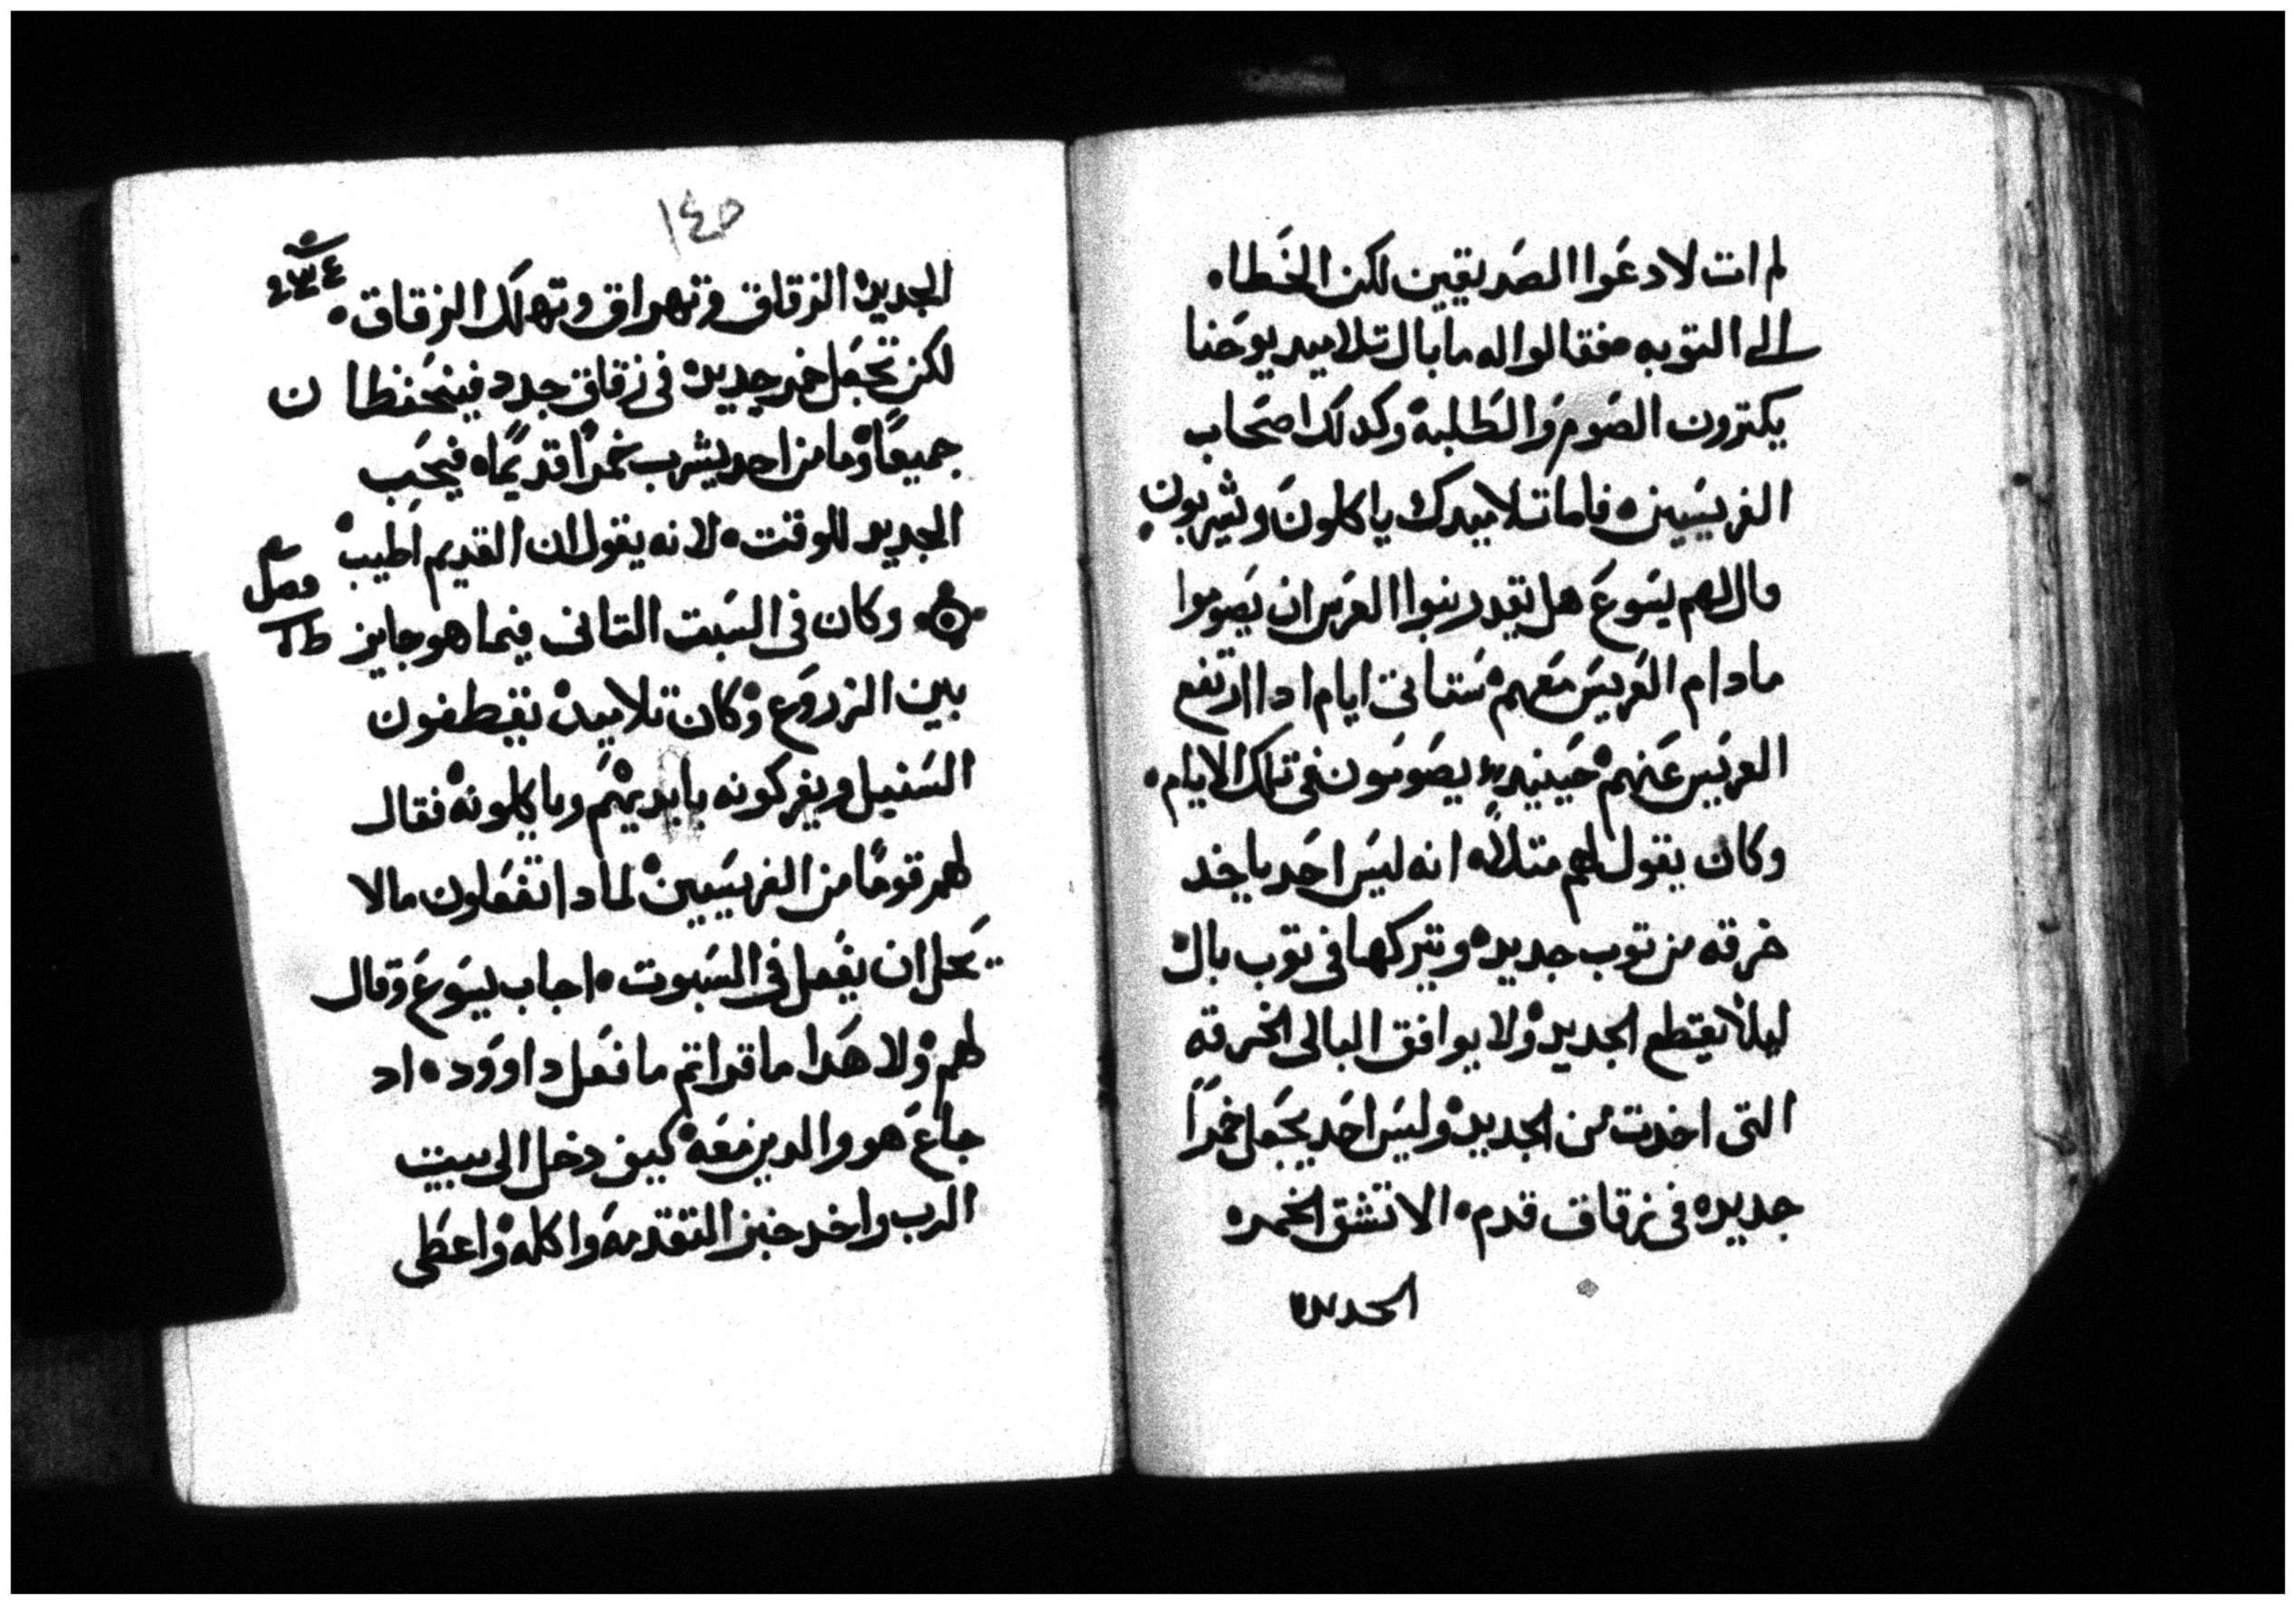 لم ات لادعوا الصديقين لكن الخطاه
الى التوبه فقالوا له ما بال تلاميد يوحنا
يكترون الصوم والطلبة وكدلك اصحاب
الفريسيين فاما تلاميدك ياكلون ويشربون
قال لهم يسوع هل تقدر بنوا العرس ان يصوموا
مادام العريس معهم ستاتى ايام ادا ارتفع
العريس عنهم حينيد يصومون فى تلك الايام
وكان يقول لهم متلاً انه ليس احد ياخد
خرقه من توب جديد ويتركها فى توب بال
ليلا يقتطع الجديد ولا يوافق البالى الخرقه
التى اخدت من الجديد وليس احد يجعل خمراً
جديده فى زقاق قدم الا تشق الخمره
الجديده
١٤٥
الجديده الزقاق وتهراق وتهلك الزقاق
لكن تجعل خمر جديده فى زقاق جدد فينحفظان
جميعاً وما من احد يشرب خمراً قديماً فيحب
الجديد للوقت لانه يقول ان القديم اطيب
فصل
وكان فى السبت التانى فيما هو جايز
بين الزروع وكان تلاميده يقطفون
السنبل ويفركونه بايديهم وياكلونه فقال
لهم قوماً من الفريسيين لمادا تفعلون ما لا
يحل ان يفعل فى السبوت اجاب يسوع وقال
لهم ولا هدا ما قراتم ما فعل داوود اد
جاع هو والدين معه كيف دخل الى بيت
الرب واخد خبز التقدمة واكله واعطى